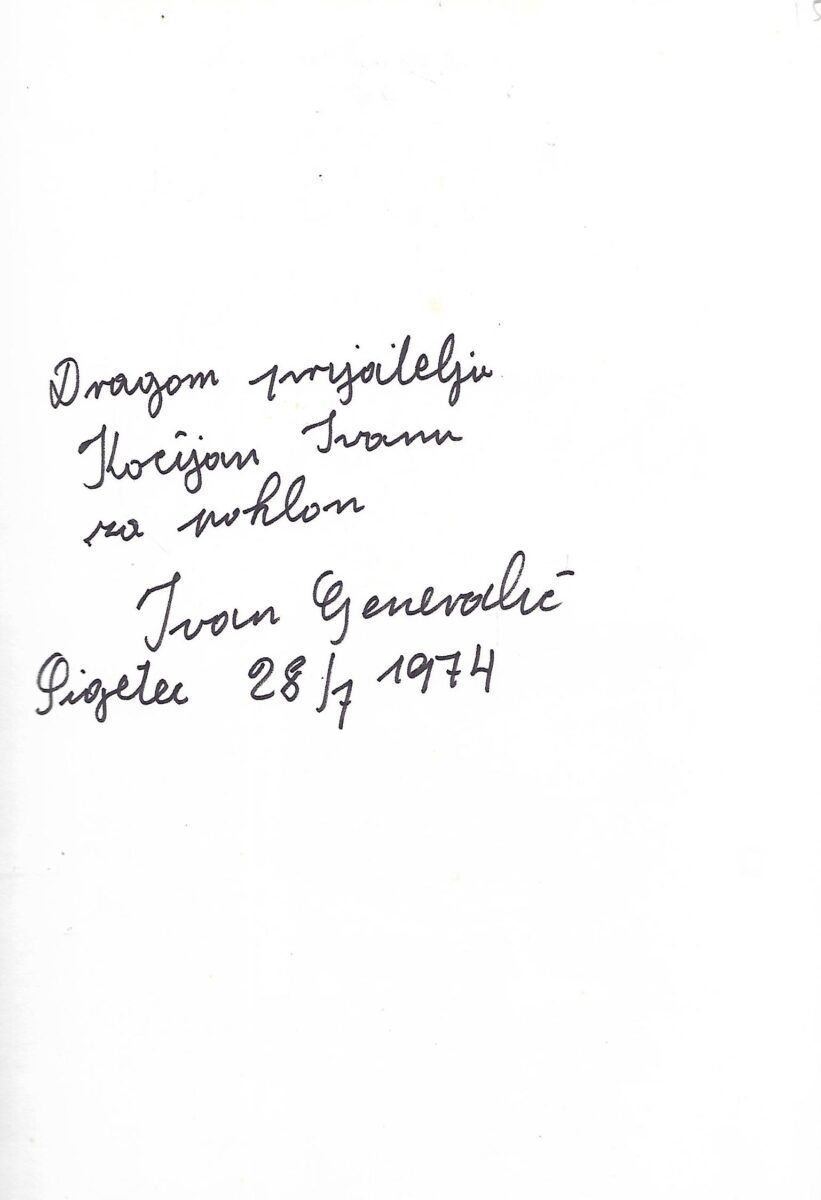 Dragom prijatelju
Kocijan Ivanu
za poklon
Ivan Generalić
Sigetec 28/7 1974